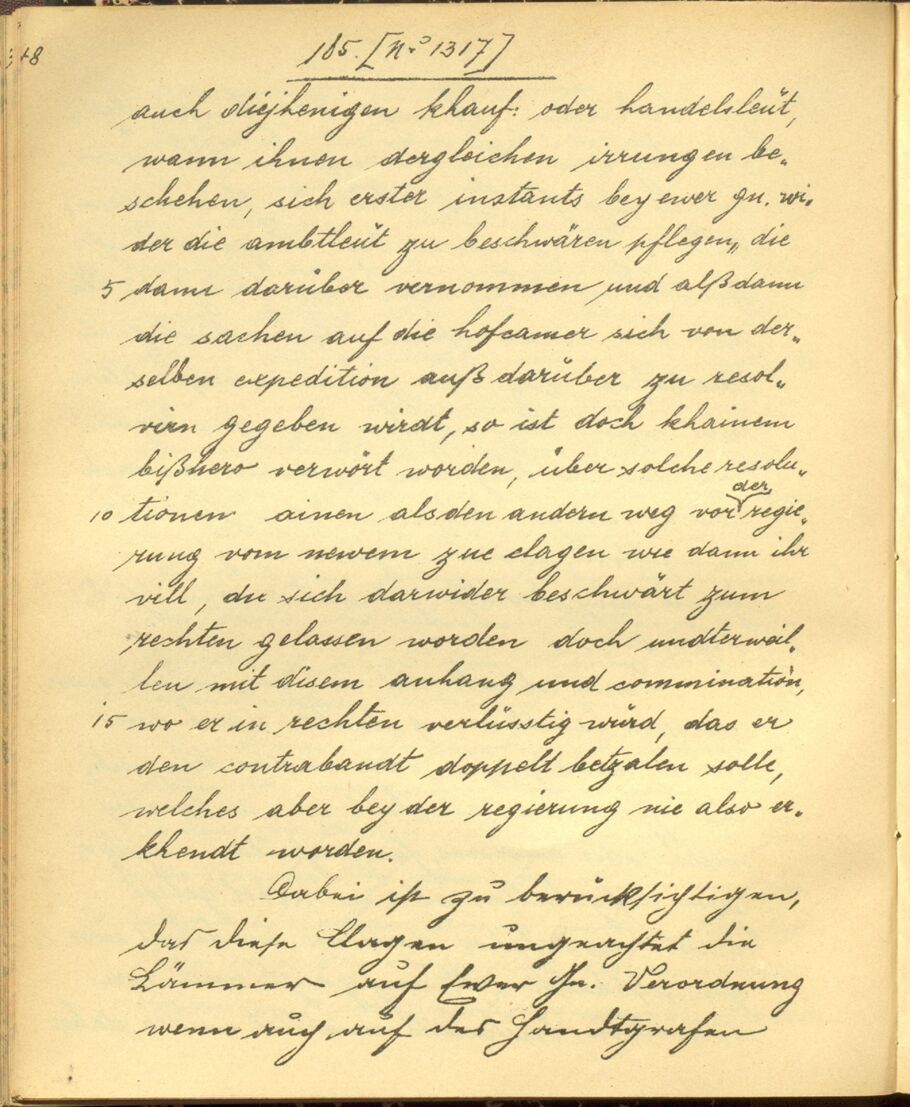 348
185. [No 1317]
auch diejhenigen khauf: oder handelsleüt,
wann ihnen dergleichen irrungen be„
schehen, sich erster instants bey ewer gn. wi„
der die ambtleüt zu beschwären pflegen, die
5 dann darüber vernommen und alßdann
die sachen auf die hofcamer sich von der„
selben expedition auß darüber zu resol„
virn gegeben wirdt, so ist doch khainem
bißhero verwört worden, über solche resolu„
10 tionen ainen als den andern weg vor der regie„
rung vom newem zue clagen wie dann ihr
vill, du sich darwider beschwärt zum
rechten gelassen worden doch undterweil„
len mit disem anhang und commination,
15 wo er in rechten verlüsstig würd, das er
den contrabandt doppelt betzalen solle,
welches aber bey der regierung nie also er„
khendt worden.
Dabei ist zu berücksichtigen,
das diese Clagen ungeachtet die
Cämmer auf Ewer Gn. Verordnung
wenn auch auf des Handtgrafen